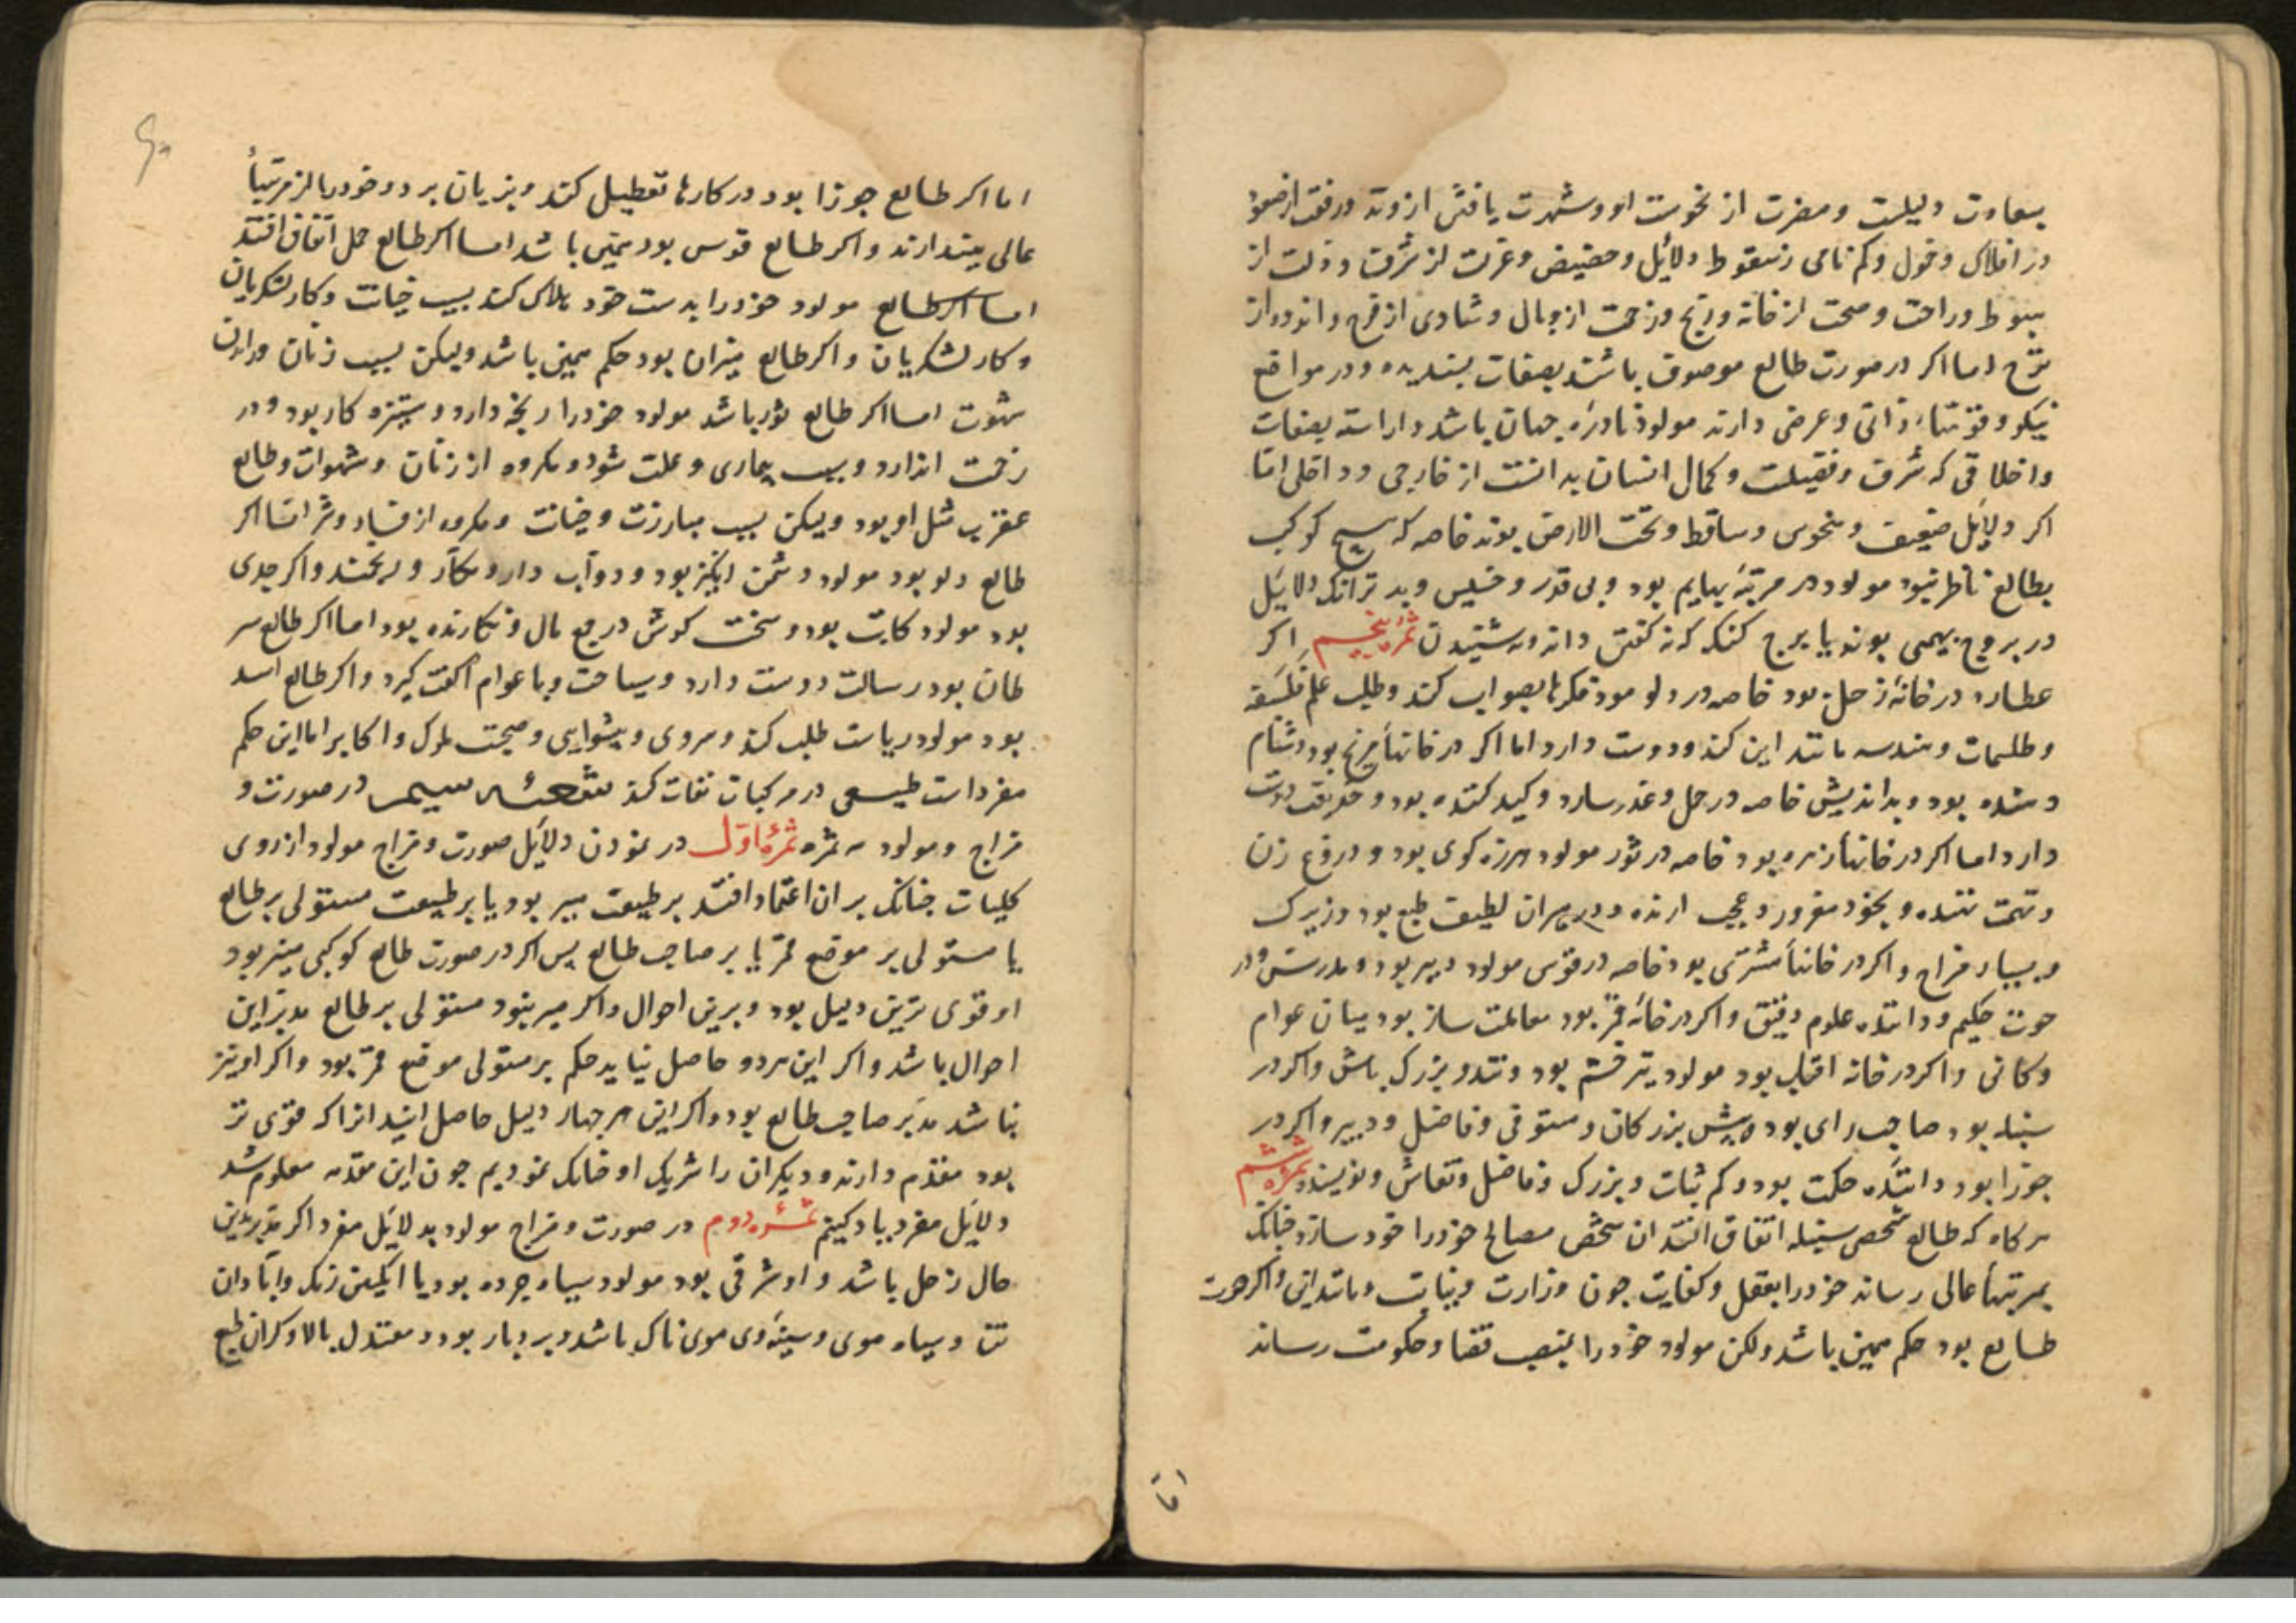 بسعادت دلیلست و مضرت از نحوست او و شهرت یافتن از وتد و رفعت از صعود
در افلاک و خمول و کم نامی ز سقوط دلایل و حضیض و عزت از شرف و ذلت از
هبوط و راحت و صحت از خانه و رنج و زحمت از وبال و شادی از فرح و اندوه از
ترح اما اکر در صورت طالع موصوف باشند بصفات پسندیده و در مواقع
نیکو و قوتهاء ذاتی و عرضی دارند مولود نادرۀ جهان باشد و اراسته بصفات
و اخلاقی که شرف و فضیلت و کمال انسان بدانست از خارجی و داخلی اما
اکر دلایل ضعیف و منحوس و ساقط و تحت الارض بوند خاصه که هیچ کوکب
بطالع ناظر نبود مولود در مرتبۀ بهایم بود و بی قدر و خسیس و بدتر انک دلایل
در بروج بهیمی بوند یا برج کنک که نه کفتن داند و نه شنیدن ثمرۀ پنجم اکر
عطارد در خانۀ زحل بود خاصه در دلو مولود فکرها بصواب کند و طلب علم فلسفه
و طلسمات و هندسه مانند این کند و دوست دارد اما اکر در خانهأ مریخ بود دشنام
دهنده بود و بداندیش خاصه در حمل و غدر سازد و کید کننده بود و دوست
دارد اما اکر در خانهأ زهره بود خاصه در ثور مولود هرزه کوی بود و دروغ زن
و تهمت نهنده و بخود مغرور و عجب ارنده و در میزان لطیف طبع بود و زیرک
و بسیار مزاح و اکر در خانهأ مشتری بود خاصه در قوس مولود دبیر بود و مدرس و در
حوت حکیم و داننده علوم دقیق و اکر در خانۀ قمر بود معاملت ساز بود میان عوام
و کانی و اکر در خانه افتاب بود مولود تیز فهم بود و تند و بزرک باش و اکر در
سنبله بود صاحب رای بود و پیش بزرکان و مستوفی و فاضل و دبیر و اکر در
جوزا بود داننده حکمت بود و کم ثبات و بزرک و فاضل و نقاش و نویسنده ثمرۀ ششم
هرکاه که طالع شخصی سنبله اتفاق افتد ان شخص مصالح خود را خود سازد چنانک
بمرتبهأ عالی رساند خود را بعقل و کفایت چون وزارت و نیابت و مانند این و اکر حوت
طالع بود حکم همین باشد ولکن مولود خود را بمنصب قضا و حکومت رساند
اما
اما اکر طالع جوزا بود در کارها تعطیل کند و بزیان برد و خود را از مرتبهأ
عالی بیندازند و اکر طالع قوس بود همین باشد اما اکر طالع حمل اتفاق افتد
اما اکر طالع مولود خود را بدست خود هلاک کند بسبب خیانت و کار لشکریان
و کار لشکریان و اکر طالع میزان بود حکم همین باشد ولیکن بسبب زنان و راندن
شهوت اما اکر طالع ثور باشد مولود خود را رنجه دارد و ستیزه کار بود و در
زحمت اندازد و سبب بیماری و علت شود و مکروه از زنان و شهوات و طالع
عقرب مثل او بود ولیکن بسبب مبارزت و خیانت و مکروه از فساد و شر اما اکر
طالع دلو بود مولود دشمن انکیز بود و دواب دارد مکار و و اکر جدی
بود مولود کاتب بود و سخت کوش در جمع مال و نکارنده بود اما اکر طالع سر
طان بود رسالت دوست دارد و سیاحت و با عوام الفت کیرد و اکر طالع اسد
بود مولود ریاست طلب کند و سروی و پیشوایی و صحبت ملوک و اکابر اما این حکم
مفرد است طبیعی در مرکبات نقات کند شعبۀ سیم در صورت و
مزاج و مولود سه ثمره ثمرۀ اول در نمودن دلایل صورت و مزاج مولود از روی
کلیات چنانک بر ان اعتماد افتد بر طبیعت مبتز بود یا بر طبیعت مستولی بر طالع
یا مستولی بر موضع قمر یا بر صاحب طالع پس اکر در صورت طالع کوکبی مبتز بود
او قوی ترین دلیل بود و برین احوال و اکر مبتز نبود مستولی بر طالع مدبر این
احوال باشد و اکر این هر دو حاصل نیاید حکم بر مستولی موضع قمر بود و اکر او نیز
نباشد مدبر صاحب طالع بود و اکر این هر چهار دلیل حاصل ایند انرا که قوی تر
بود مقدم دارند و دیکران را شریک او چنانک نمودیم چون این مقدمه معلوم شد
دلایل مفرد یاد کنیم ثمرۀ دوم در صورت و مزاج مولود بدلایل مفرد اکر مدبر این
حال زحل باشد و او شرقی بود مولود سیاه چرده بود یا انکبین رنک و آبادان
تن و سیاه موی و سینۀ وی موی ناک باشد و بردبار بود و معتدل بالا و کران طبع